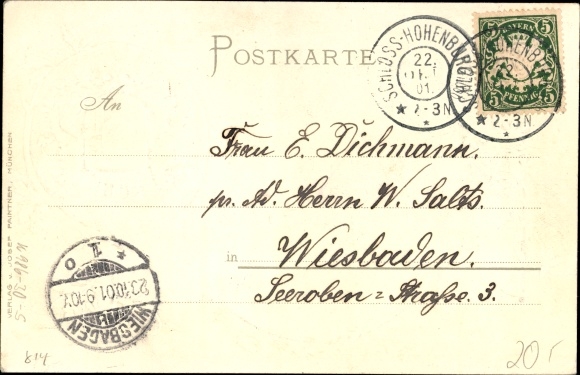 POSTKARTE
SCHLOSS-HOHENBURG
22.
01.
2-3N
BAYERN
5 5
PFENNIG
5 5
2-3N
An
Frau E. Dichmann.
pr. Ad. Herrn W. Salts.
in Wiesbaden.
Seeroben=Straße. 3.
WIESBADEN
23.10.01.9-10V.
* 1 o
VERLAG v. JOSEF PAINTNER, MÜNCHEN
814
20